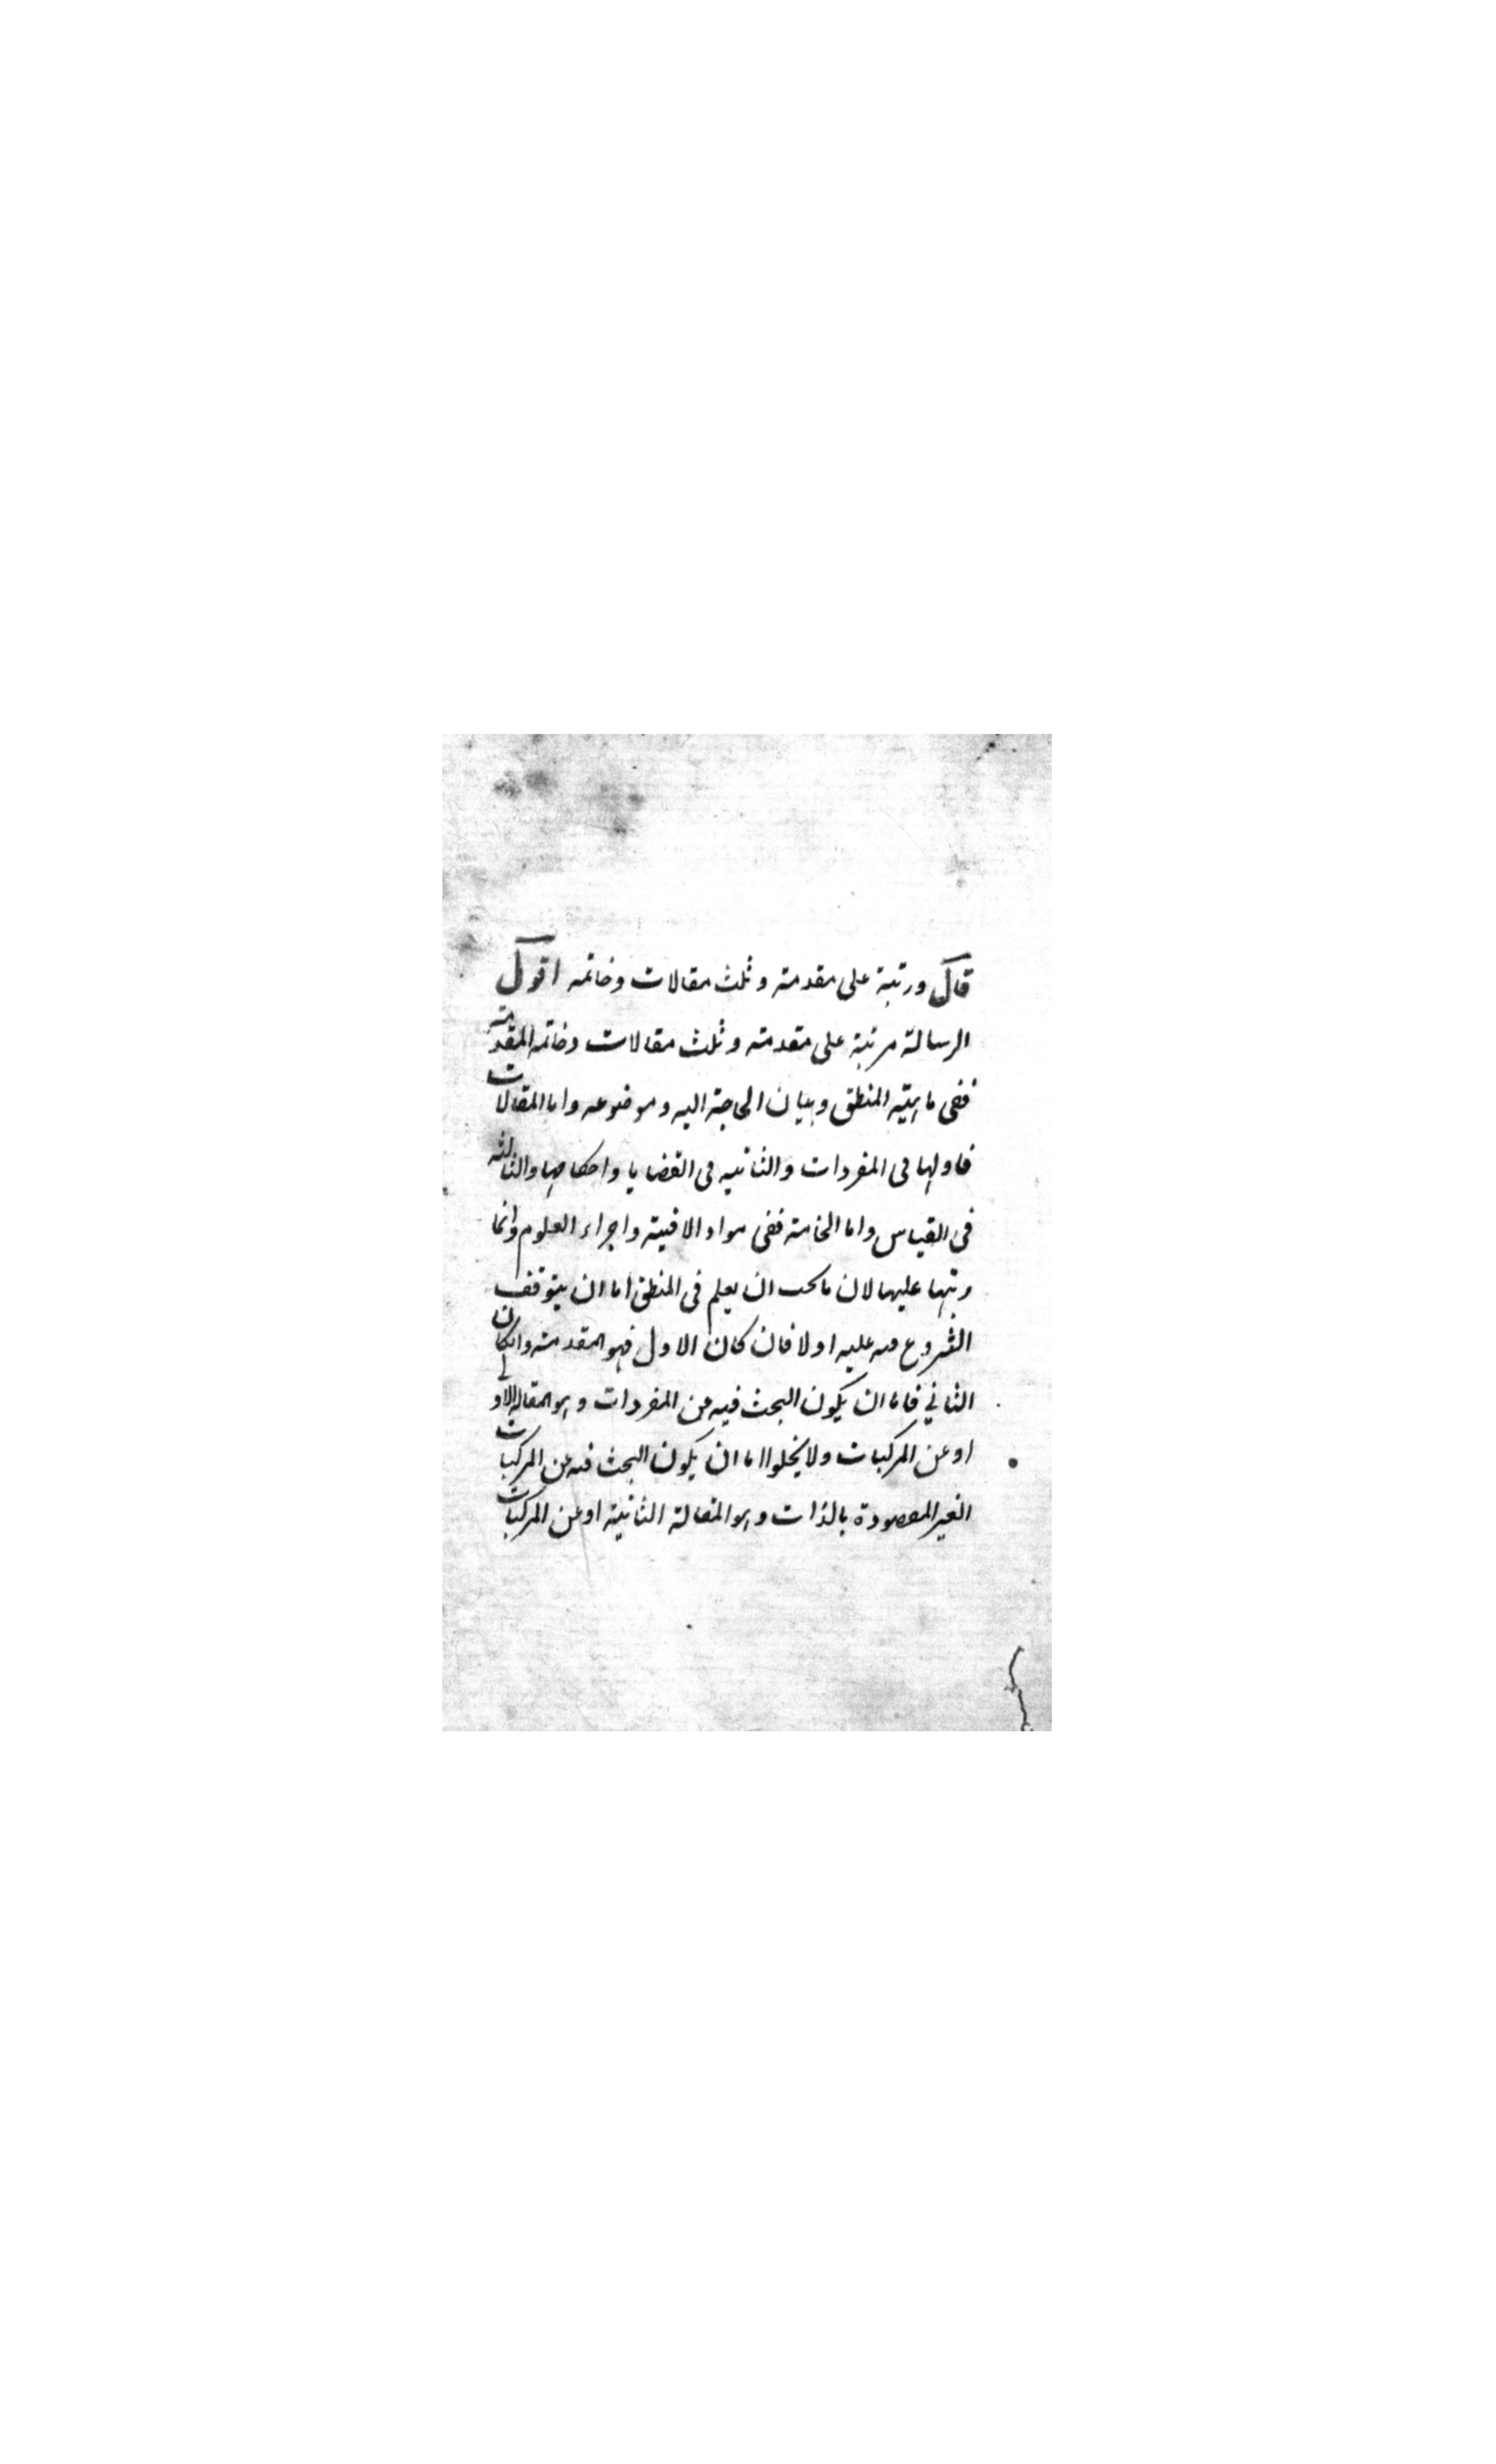 قال ورتبة على مقدمة وثلث مقالات وخاتمه اقول
الرسالة مرتبة على مقدمة وثلث مقالات وخاتمه المقدمة
ففى ماهيته المنطق وبيان الحاجة اليه وموضوعه واما المقالات
فاولها فى المفردات والثانيه فى القضايا واحكامها والثالثه
فى القياس واما الخاتمة ففى مواد الاقيسة واجزاء العلوم وانما
رتبها عليها لان ما يجب ان يعلم فى المنطق اما ان يتوقف
الشروع فيه عليه اولا فان كان الاول فهو المقدمة وان كان
الثاني فاما ان يكون البحث فيه عن المفردات وهو المقاله الاولى
او عن المركبات ولا يخلوا اما ان يكون البحث فيه عن المركبات
الغير المقصودة بالذات وهو المقالة الثانية او عن المركبات